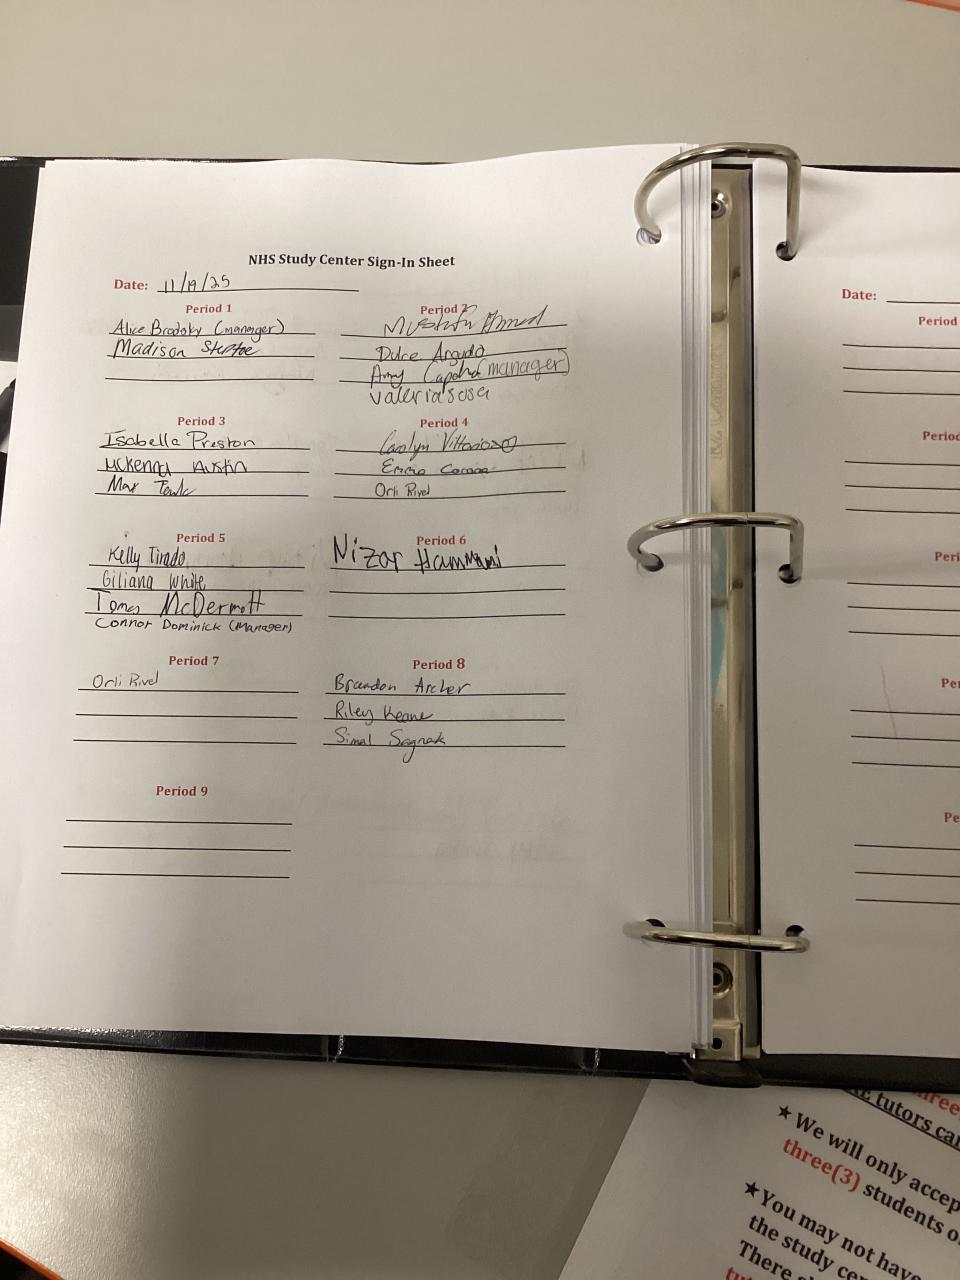 NHS Study Center Sign-In Sheet
Date: 11/19/25
Period 1
Alice Brodsky (manager)
Madison
Period 2
Ahmed
Dulce Argudo
Amy (manager)
Valeria Sosa
Period 3
Isabella Preston
McKenna Austin
Max
Period 4
Carolyn
Emma
Orli Rivel
Period 5
Kelly Tirado
Giliana White
Tomas McDermott
Connor Dominick (Manager)
Period 6
Nizar Hammami
Period 7
Orli Rivel
Period 8
Brandon Archer
Riley Keane
Simal Sagnak
Period 9
Date:
Period
Period
Peri
Pe
Pe
tutors can
★ We will only accep
three(3) students o
★ You may not have
the study ce
There